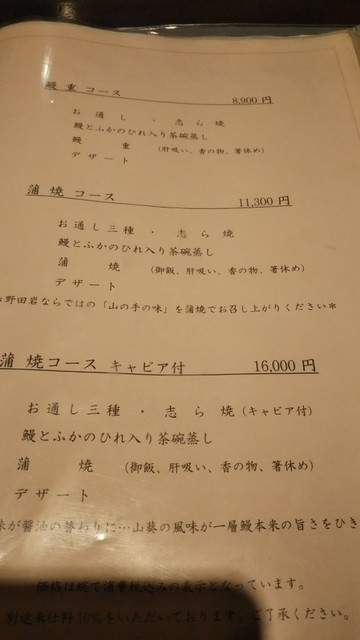 鰻重コース 8,900円
お通し・志ら焼
鰻とふかのひれ入り茶碗蒸し
鰻重 (肝吸い、香の物、箸休め)
デザート
蒲焼コース 11,300円
お通し三種・志ら焼
鰻とふかのひれ入り茶碗蒸し
蒲焼 (御飯、肝吸い、香の物、箸休め)
デザート
野田岩ならではの「山の手の味」を蒲焼でお召し上がりください*
蒲焼コース キャビア付 16,000円
お通し三種・志ら焼(キャビア付)
鰻とふかのひれ入り茶碗蒸し
蒲焼 (御飯、肝吸い、香の物、箸休め)
デザート
味が醤油の替わりに…山葵の風味が一層鰻本来の旨さをひき
価格は総て消費税込みの表示となっています。
別途奉仕料10%をいただいております。ご了承ください。